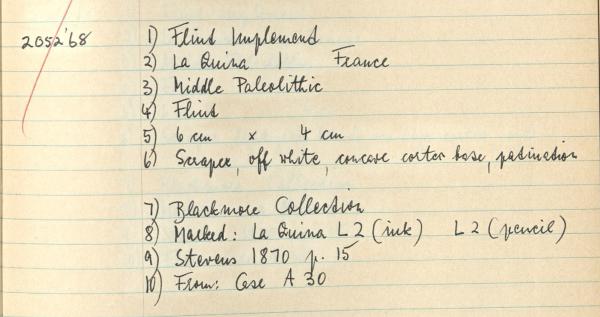 2052'68
1) Flint Implement
2) La Quina | France
3) Middle Paleolithic
4) Flint
5) 6 cm x 4 cm
6) Scraper, off white, concave cortex base, patination
7) Blackmore Collection
8) Marked: La Quina L2 (ink) L2 (pencil)
9) Stevens 1870 p. 15
10) From: Case A 30